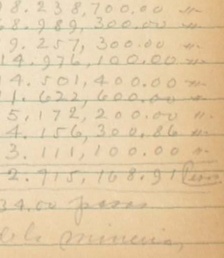 8.238,700.00 "
68.989,300.00 "
9.257,300.00 "
14.976,100.00 "
14.501,400.00 "
1.622,600.00 "
5,172,200.00 "
4.156,300.86 "
3.111,100.00 "
2.915,108.91
34.00 pesos
de la minería,